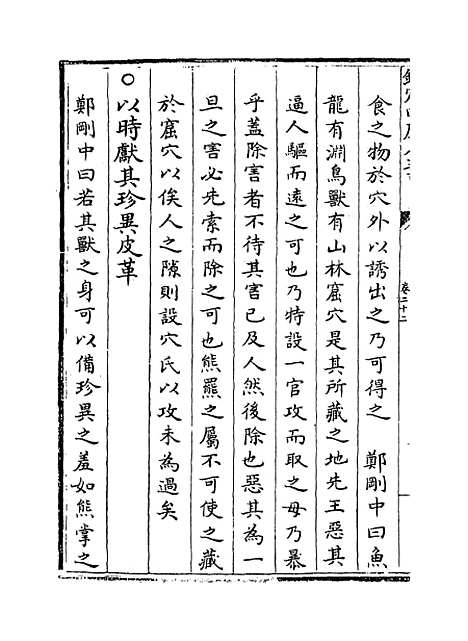 食之物於穴外以誘出之乃可得之　鄭剛中曰魚
龍有淵鳥獸有山林窟穴是其所藏之地先王惡其
逼人驅而遠之可也乃特設一官攻而取之毋乃暴
乎蓋除害者不待其害已及人然後除也惡其為一
旦之害必先索而除之可也熊羆之屬不可使之藏
於窟穴以俟人之隙則設穴氏以攻未為過矣
○以時獻其珍異皮革
鄭剛中曰若其獸之身可以備珍異之羞如熊掌之
卷二十二